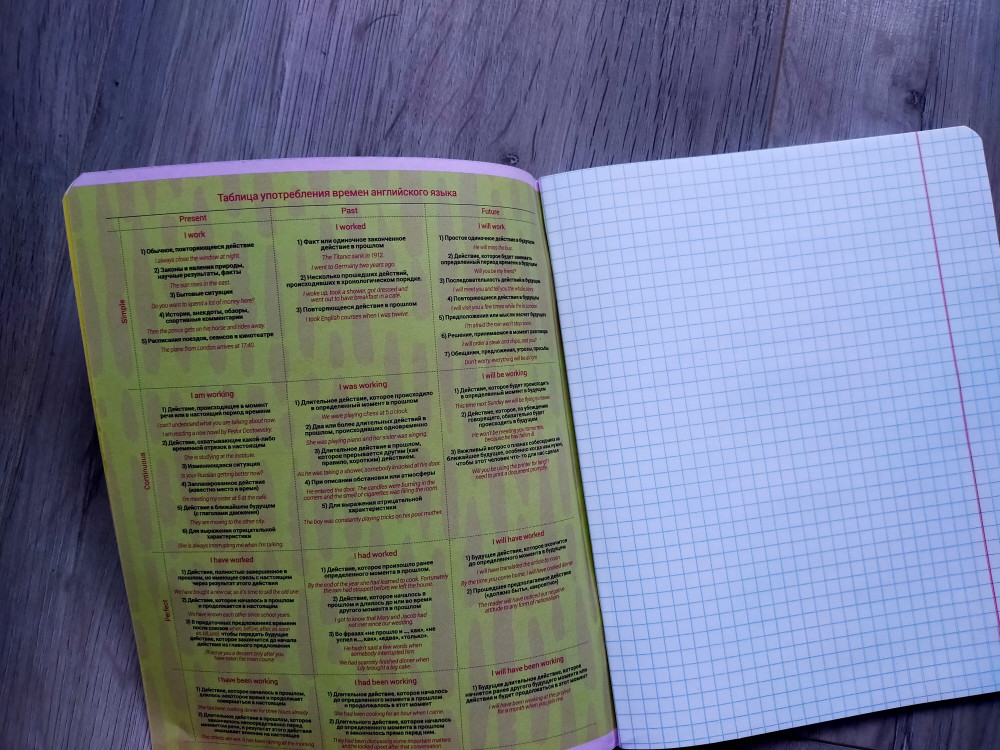 Таблица употребления времен английского языка
Present
Past
Future
Simple
I work
1) Обычное, повторяющееся действие
I always close the window at night.
2) Законы и явления природы,
научные результаты, факты
The sun rises in the east.
3) Бытовые ситуации
Do you want to spend a lot of money here?
4) Истории, анекдоты, обзоры,
спортивные комментарии
Then the prince gets on his horse and rides away.
5) Расписания поездов, сеансов в кинотеатре
The plane from London arrives at 17:40.
I worked
1) Факт или одиночное законченное
действие в прошлом
The Titanic sank in 1912.
I went to Germany two years ago.
2) Несколько прошедших действий,
происходивших в хронологическом порядке.
I woke up, took a shower, got dressed and
went out to have breakfast in a cafe.
3) Повторяющееся действие в прошлом
I took English courses when I was twelve.
I will work
1) Простое одиночное действие в будущем
He will miss the bus.
2) Действие, которое будет занимать
определенный период времени в будущем
Will you be my friend?
3) Последовательность действий в будущем
I will meet you and tell you the whole story.
4) Повторяющееся действие в будущем
I will visit you a few times while I'm in London.
5) Предположения или мысли насчет будущего
I'm afraid the rain won't stop soon.
6) Решение, принимаемое в момент разговора
I will order a steak and chips, and you?
7) Обещания, предложения, угрозы, просьбы
Don't worry, everything will be alright.
Continuous
I am working
1) Действие, происходящее в момент
речи или в настоящий период времени
I can't understand what you are talking about now.
I am reading a new novel by Fedor Dostoevsky.
2) Действие, охватывающее какой-либо
временной отрезок в настоящем
She is studying at the institute.
3) Изменяющаяся ситуация
Is your Russian getting better now?
4) Запланированное действие
(известно место и время)
I'm meeting my sister at 6 at the café.
5) Действие в ближайшем будущем
(с глаголами движения)
They are moving to the other city.
6) Для выражения отрицательной
характеристики
She is always interrupting me when I'm talking.
I was working
1) Длительное действие, которое происходило
в определенный момент в прошлом
We were playing chess at 5 o'clock.
2) Два или более длительных действий в
прошлом, происходивших одновременно
She was playing piano and her sister was singing.
3) Длительное действие в прошлом,
которое прерывается другим (как
правило, коротким) действием.
As he was taking a shower, somebody knocked at his door.
4) При описании обстановки или атмосферы
He entered the door. The candles were burning in the
corners and the smell of cigarettes was filling the room.
5) Для выражения отрицательной
характеристики
The boy was constantly playing tricks on his poor mother.
I will be working
1) Действие, которое будет происходить
в определенный момент в будущем
This time next Sunday we will be flying to
2) Действие, которое, по убеждению
говорящего, обязательно будет
происходить в будущем
He won't be meeting you tomorrow,
because he has fallen ill.
3) Вежливый вопрос о планах собеседника на
ближайшее будущее, особенно когда нам нужно,
чтобы этот человек что-то для нас сделал
Will you be using the printer for long? I
need to print a document promptly.
Perfect
I have worked
1) Действие, полностью завершенное в
прошлом, но имеющее связь с настоящим
через результат этого действия
We have bought a new car, so it's time to sell the old one.
2) Действие, которое началось в прошлом
и продолжается в настоящем
We have known each other since school years.
3) В придаточных предложениях времени
после союзов when, before, after, as soon
as, till, until, чтобы передать будущее
действие, которое закончится до начала
действия из главного предложения
I'll serve you a dessert only after you
have eaten the main course
I had worked
1) Действие, которое произошло ранее
определенного момента в прошлом.
By the end of the year she had learned to cook. Fortunately
the rain had stopped before we left the house.
2) Действие, которое началось в
прошлом и длилось до или во время
другого момента в прошлом
I got to know that Mary and Jacob had
not met since our wedding.
3) Во фразах «не прошло и ..., как», «не
успел и..., как», «едва», «только».
He hadn't said a few words when
somebody interrupted him.
We had scarcely finished dinner when
Lily brought a big cake.
I will have worked
1) Будущее действие, которое окончится
до определенного момента в будущем
I will have translated the article by noon.
By the time you come home, I will have cooked dinner.
2) Прошедшее предполагаемое действие
(«должно быть», «вероятно»)
The reader will have noticed our negative
attitude to any form of nationalism.
I have been working
1) Действие, которое началось в прошлом,
длилось некоторое время и продолжает
совершаться в настоящем
She has been cooking dinner for three hours already.
2) Длительное действие в прошлом, которое
закончилось непосредственно перед
моментом речи, и результат этого действия
оказывает влияние на настоящее
I had been working
1) Длительное действие, которое началось
до определенного момента в прошлом
и продолжалось в этот момент
She had been cooking for an hour when I came.
2) Длительного действия, которое началось
до определенного момента в прошлом
и закончилось прямо перед ним.
They had been discussing some important matters
and he looked upset after that conversation.
I will have been working
1) Будущее длительное действие, которое
начнется ранее другого будущего момента или
действия и будет продолжаться в этот момент
I will have been working at the project
for a month when you join me.